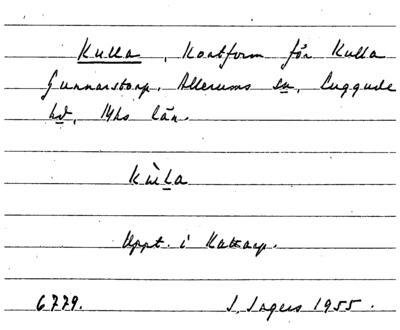 Kulla, Kortform för Kulla
Gunnarstorp, Allerums sn, Luggude
hd, Mhs län.
Kùlla
Uppt. i Kattarp.
6779. J. Ingers 1955.